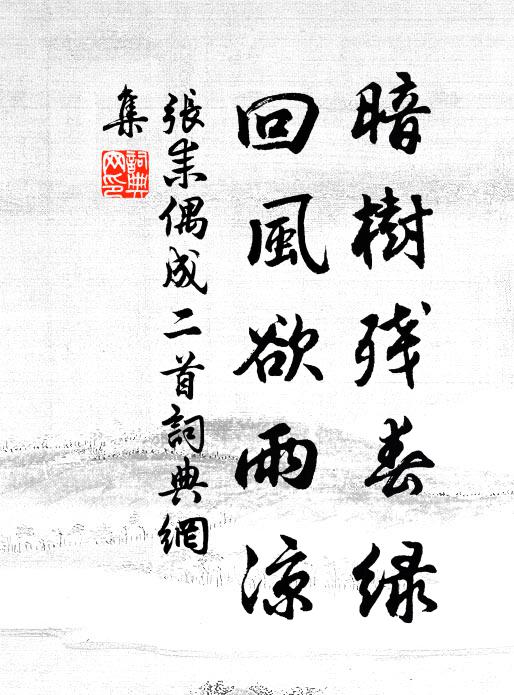 暗樹残春緑
回風欲雨涼
張耒偶成二首詞典網
集
詞典網印